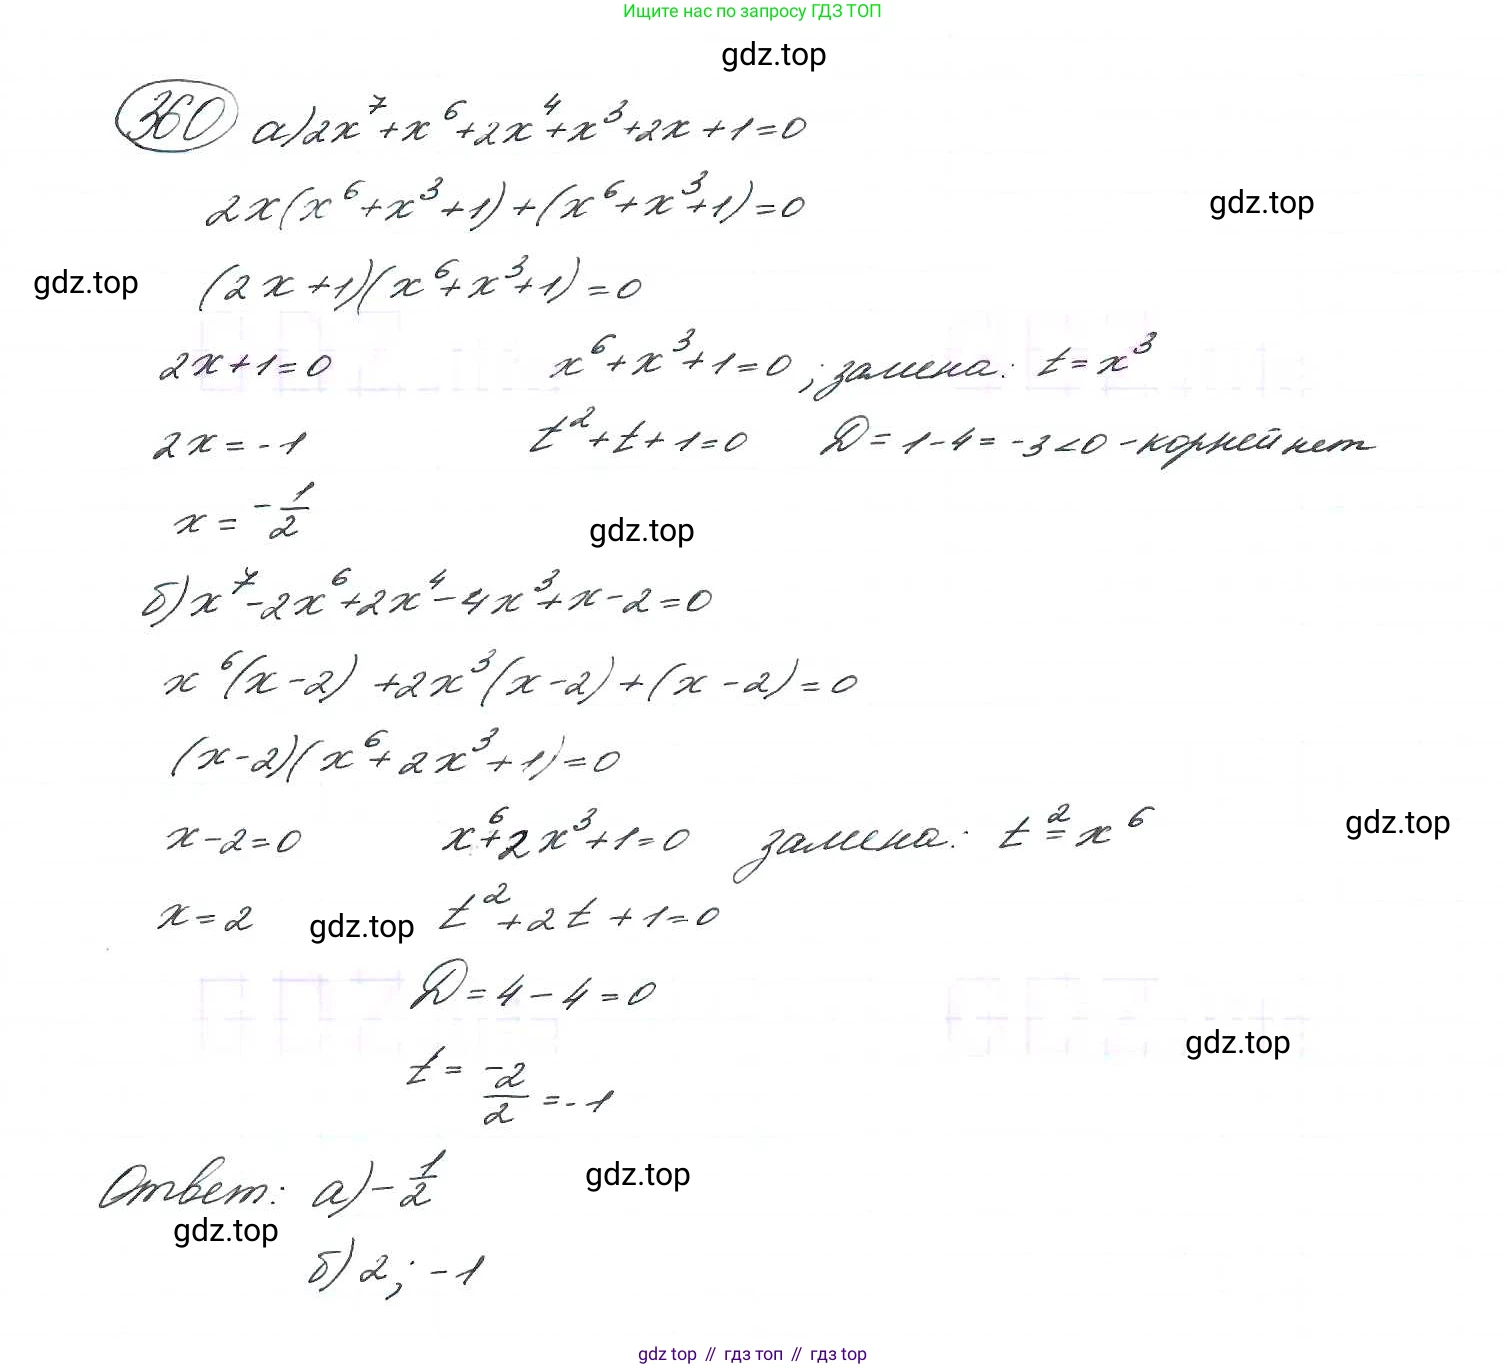 Ищите нас по запросу ГДЗ ТОП
gdz.top
360 а) 2x⁷+x⁶+2x⁴+x³+2x+1=0
2x(x⁶+x³+1)+(x⁶+x³+1)=0
gdz.top
gdz.top
(2x+1)(x⁶+x³+1)=0
2x+1=0 x⁶+x³+1=0; замена: t=x³
2x=-1 t²+t+1=0 D=1-4=-3<0 - корней нет
x=-1/2
gdz.top
б) x⁷-2x⁶+2x⁴-4x³+x-2=0
x⁶(x-2)+2x³(x-2)+(x-2)=0
(x-2)(x⁶+2x³+1)=0
x-2=0 x⁶+2x³+1=0 замена: t²=x⁶
gdz.top
x=2 gdz.top t²+2t+1=0
D=4-4=0
gdz.top
t=-2/2=-1
Ответ: а) -1/2
gdz.top
gdz.top
б) 2; -1
gdz top // гдз топ // гдз top